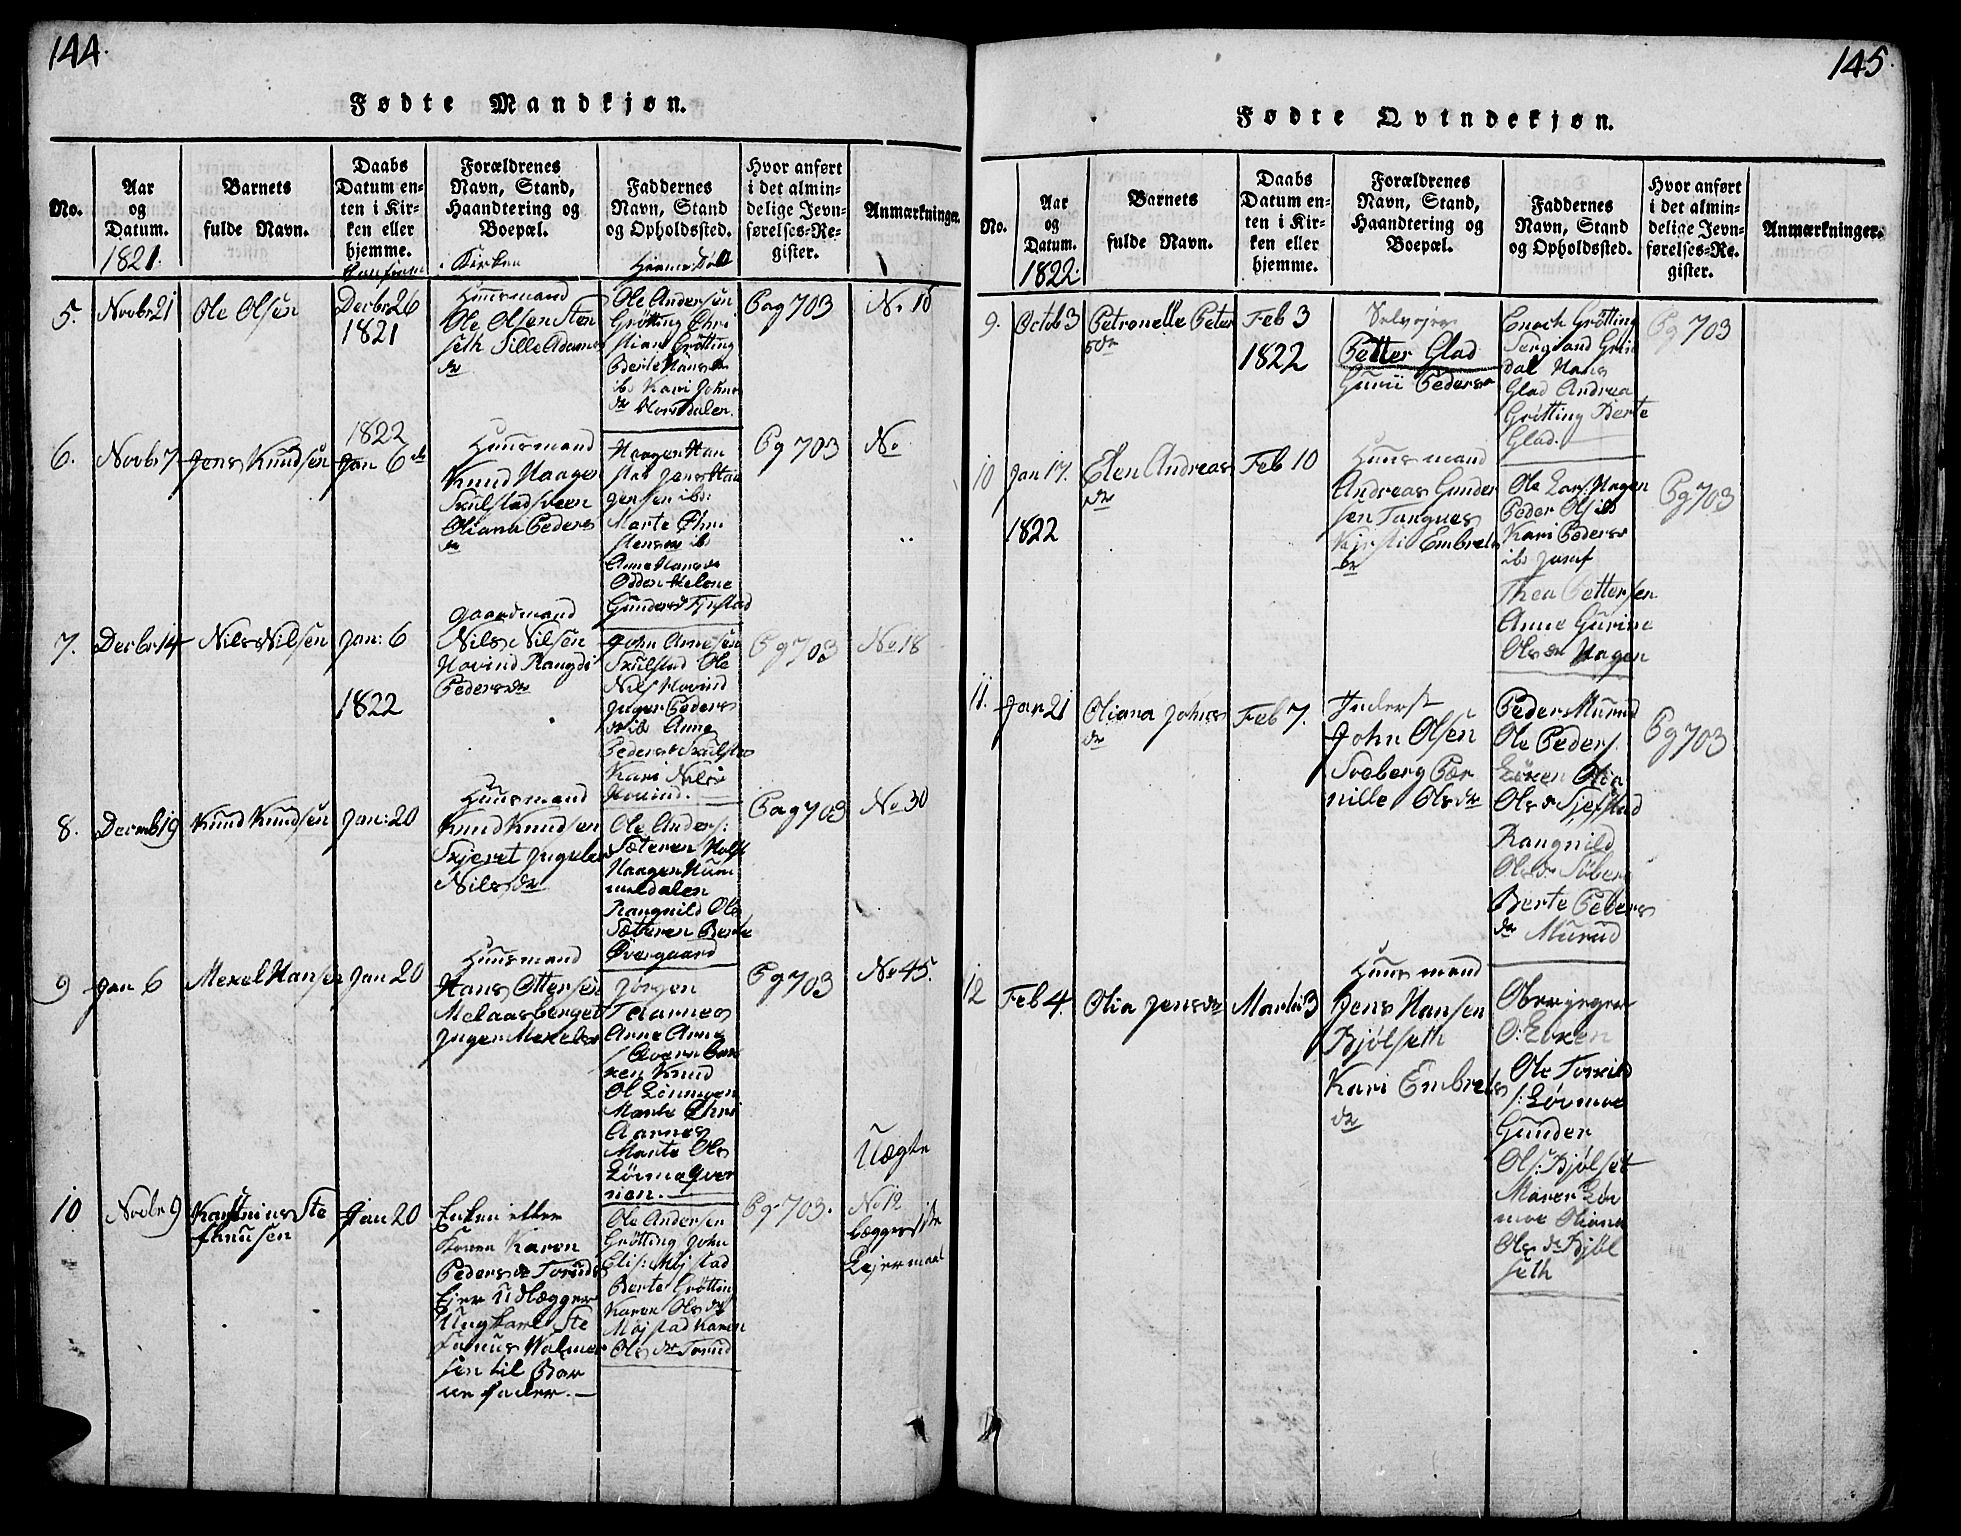 144.
Fødte Mandkjøn.
No.
Aar og Datum.
1821.
Barnets fulde Navn.
Daabs Datum enten i Kirken eller hjemme.
Forældrenes Navn, Stand, Haandtering og Boepæl.
Kirken
Faddernes Navn, Stand og Opholdssted.
Hvor anført i det almindelige Jevnførelses-Register.
Anmærkninger.
5.
Novbr 21
Ole Olsen
Decbr 26
1821
Huusmand
Ole Olsen Sten
seth Sille Adams
dr
Ole Andersen
Grötting Chri
stian Grötting
Berte Hansdr
ibd Kari Johns
dr Horsdalen.
Pag 703
No 18
6.
Novbr 7
Jens Knudsen
1822
Jan 6te
Huusmand
Knud Haagen
Skulstadsveen
Oliana Peders
dr
Haagen Han
stad Jens Haa
gensen ibd:
Marte Chri
stensdr ib
Anne Hansdr
Odden Helene
Gundersdr Fjestad
Pg 703
No
7.
Decbr 14
Nils Nilsen
Jan: 6
1822
Gaardmand
Nils Nilsen
Hovind Rangdi
Pedersdr
John Arnesen
Skulstad Ole
Nils Hovind
Inger Peders
dr ib Anne
Pedersdr Skulstad
Kari Nilsdr
Hovind.
Pg 703
No. 18
8.
Decmb 19
Knud Knudsen
Jan: 20
Huusmand
Knud Knudsen
Skjeret Ingebor
Nilsdr
Ole Anders:
Sæteren Hals
Haagen Hum
meldalen
Rangnild Ols
Sætteren Berte
Övergaard
Pag 703
No 30
9
Jan 6
Mekel Hansen
Jan 20
Huusmand
Hans Ottersen
Melaasberget
Inger Mekelsdr
Jörgen
Taarnes
Anne Arne
ken Knud
Ol Lönmoen
Marte Chri
Aarnes
Marte Ols
Lövmoqver
nen.
Pg 703
No 45.
10
Novbr 9
Karstinus Ste
fhnusen
Jan 20
Enken eller
Konen Karen
Pedersdr Torud
Ejer Udlægger
Ungkarl Ste
fanus Halmor
sen til Bar
ne fader.
Ole Andersen
Grötting John
Elis: Mojstad
Berte Grötting
Karen Olsdr
Mojstad Karen
Olsdr Torud
Pg 703.
Uægte
No 12
Lægges
Lejermaal
145.
Fødte Qvindekjøn.
No.
Aar og Datum.
1822.
Barnets fulde Navn.
Daabs Datum enten i Kirken eller hjemme.
Forældrenes Navn, Stand, Haandtering og Boepæl.
Faddernes Navn, Stand og Opholdssted.
Hvor anført i det almindelige Jevnførelses-Register.
Anmærkninger.
9.
Octob 3
Petronelle Peter
sdr
Feb 3
1822
Selvejer
Petter Glad
Gurii Pedersdr
Enoch Grötting
Sergeand Grin
dal Hans
Glad Andrea
Grötting Berte
Glad.
Pg 703
10
Jan 17.
1822
Elen Andreas
dr
Feb 10
Huusmand
Andreas Gunder
sen Tangnes
Kjersti Embrets
dr
Ole Lars: Hagen
Peder Ols ib
Kari Pedersdr
ibd
Thea Pettersen
Anne Gurine
Olsdr Hagen
Pg 703
11.
Jan 21
Oliana Johns
dr
Feb 7.
Inderst
John Olsen
Soeberg Per
nille Olsdr
Peder Murud
Ole Peders
Löken Olia
Olsdr Sjefstad
Rangnild
Olsdr Söberg
Berte Peders
dr Murud
Pg 703
12
Feb 4.
Olia Jensdr
Marts 3
Huusmand
Jens Hansen
Bjölseth
Kari Embrets
dr
Oberjeger
O: Loken
Ole Torkild
s: Lövmoe
Gunder
Ols: Bjölset
Maren Löv
moe Oliana
Olsdr Bjöl
seth